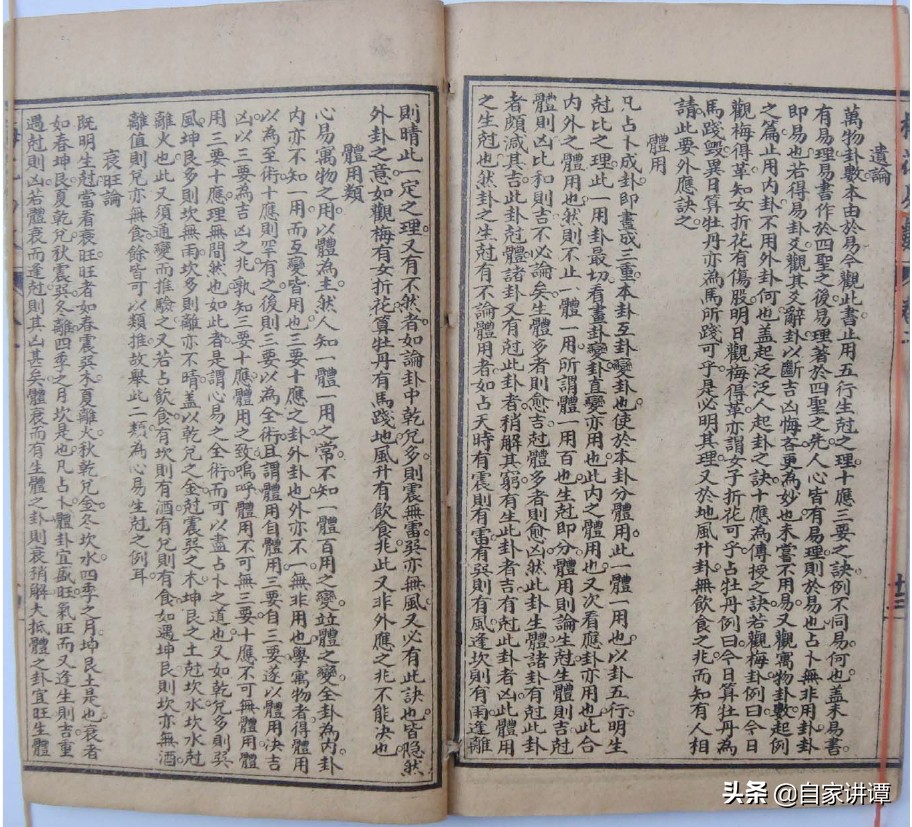 遺論
萬物卦數本由於易今觀此書止用五行生尅之理十應三要之訣例不同易何也蓋未易書
有易理易書作於四聖之後易理著於四聖之先人心皆有易理則於易也占卜無非用卦卦
即易也若得易卦爻觀其爻辭卦以斷吉凶悔吝更為妙也未嘗不用易又觀寓物卦數起例
之篇止用內卦不用外卦何也蓋起泛泛人起卦之訣十應為傳授之訣若觀梅卦例曰今日
觀梅得革知女折花有傷股明日觀梅得革亦謂女子折花可乎占牡丹例曰今日算牡丹為
馬踐毀異日算牡丹亦為馬所踐可乎是必明其理又於地風升卦無飲食之兆而知有人相
請此要外應訣之
體用
凡占卜成卦即畫成三重本卦互卦變卦也使於本卦分體用此一體一用也以卦五行明生
尅比之理此一用卦最切看畫卦變卦直變亦用也此內之體用也又次看應卦亦用也此合
內外之體用也然則不止一體一用所謂體一用百也生尅即分體用則論生尅生體則吉尅
體則凶比和則吉不必論矣生體多者則愈吉尅體多者則愈凶然此卦生體諸卦有尅此卦
者頗減其吉此卦尅體諸卦又有尅此卦者稍解其窮有生此卦者吉有尅此卦者凶此體用
之生尅也然卦之生尅有不論體用者如占天時有震則有雷有巽則有風逢坎則有雨逢離
則晴此一定之理又有不然者如論卦中乾兌多則震無雷巽亦無風又必有此訣也皆隱然
外卦之意如觀梅有女折花算牡丹有馬踐地風升有飲食兆此又非外應之兆不能決也
體用類
心易寓物之用以體為主然人知一體一用之常不知一體百用之變竝體之變全卦為內卦
內亦不知一用而互變皆用也三要十應之卦外卦也外亦不一無非用也學寓物者得體用
以為至術十應則罕有之後則三要以為全術且謂體用自體用三要自三要遂以體用決吉
凶以三要為吉凶之兆孰知三要十應體用之致嗚呼體用不可無三要十應不可無體用體
用三要十應理無間然也如此者是謂心易之全術而可以盡占卜之道也又如乾兌多則巽
風坤艮多則坎無雨坎多則離亦不晴蓋以乾兌之金尅震巽之木坤艮之土尅坎水坎水尅
離火也此又須通變而推驗之又若占飲食有坎則有酒有兌則有食如遇坤艮則坎亦無酒
離值則兌亦無食餘皆可以類推故舉此二類為心易生尅之例耳
衰旺論
既明生尅當看衰旺旺者如春震巽木夏離火秋乾兌金冬坎水四季之月坤艮土是也衰者
如春坤艮夏乾兌秋震巽冬離四季之月坎是也凡占卜體卦宜盛旺氣旺而又逢生則吉重
遇尅則凶若體衰而逢尅則其凶甚矣體衰而有生體之卦則衰稍解大抵體之卦宜旺生體
头条 @自家讲谭